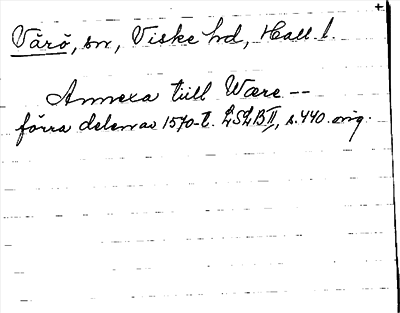 Värö, sn, Viske hd, Hall. l.
Annexa till Wære --
förra delen av 1570-t. LSLB II, s. 440. orig.